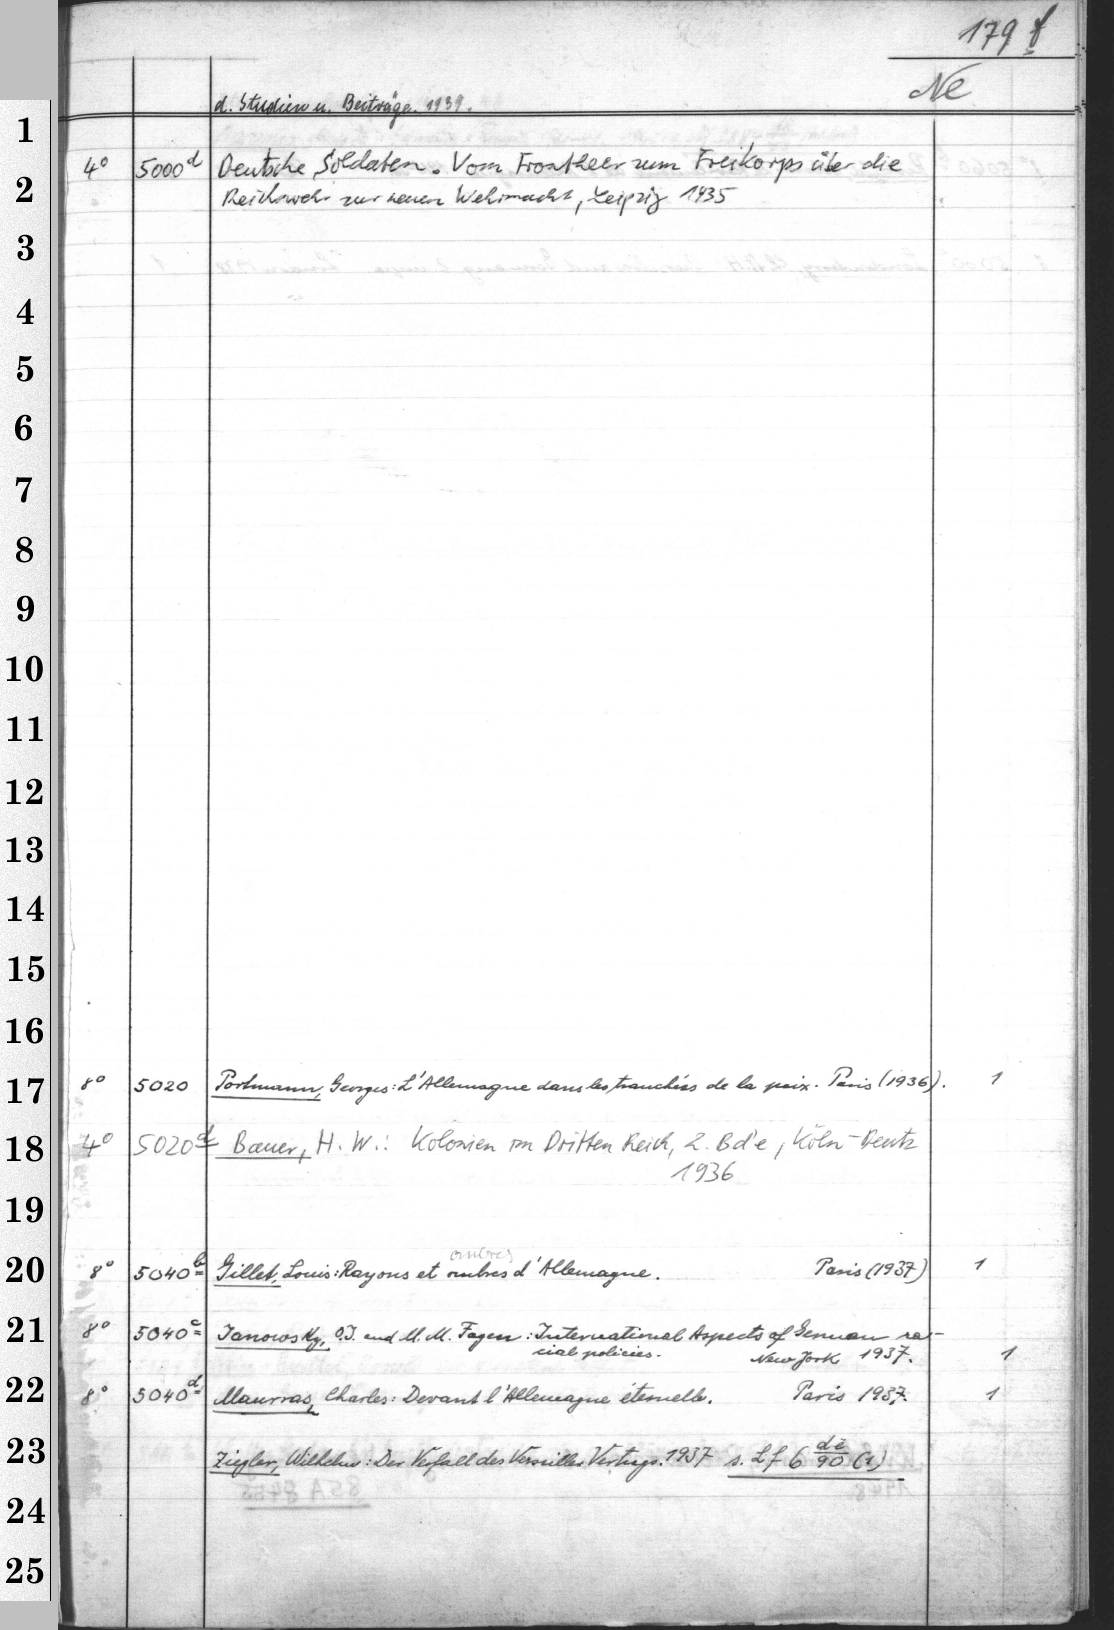 179 f
Ne
d. Studien u. Beiträge. 1939.
1
2
3
4
5
6
7
8
9
10
11
12
13
14
15
16
17
18
19
20
21
22
23
24
25
4° 5000d Deutsche Soldaten. Vom Frontheer zum Freikorps über die
Reichswehr zur neuen Wehrmacht, Leipzig 1935
8° 5020 Portmann, Georges: L'Allemagne dans les tranchées de la paix. Paris (1936). 1
4° 5020d Bauer, H. W.: Kolonien im Dritten Reich, 2. Bd'e, Köln-Deutz
1936
ombres
8° 5040b Gillet, Louis: Rayons et ombres d'Allemagne. Paris (1937) 1
8° 5040c Janowsky, O.I. and M. M. Fagen: International Aspects of German ra-
cial policies. New York 1937. 1
8° 5040d Maurras, Charles: Devant l'Allemagne éternelle. Paris 1937. 1
Ziegler, Wilhelm: Der Verfall des Versailler Vertrags. 1937 s. Lf 6 dē/90 (1)